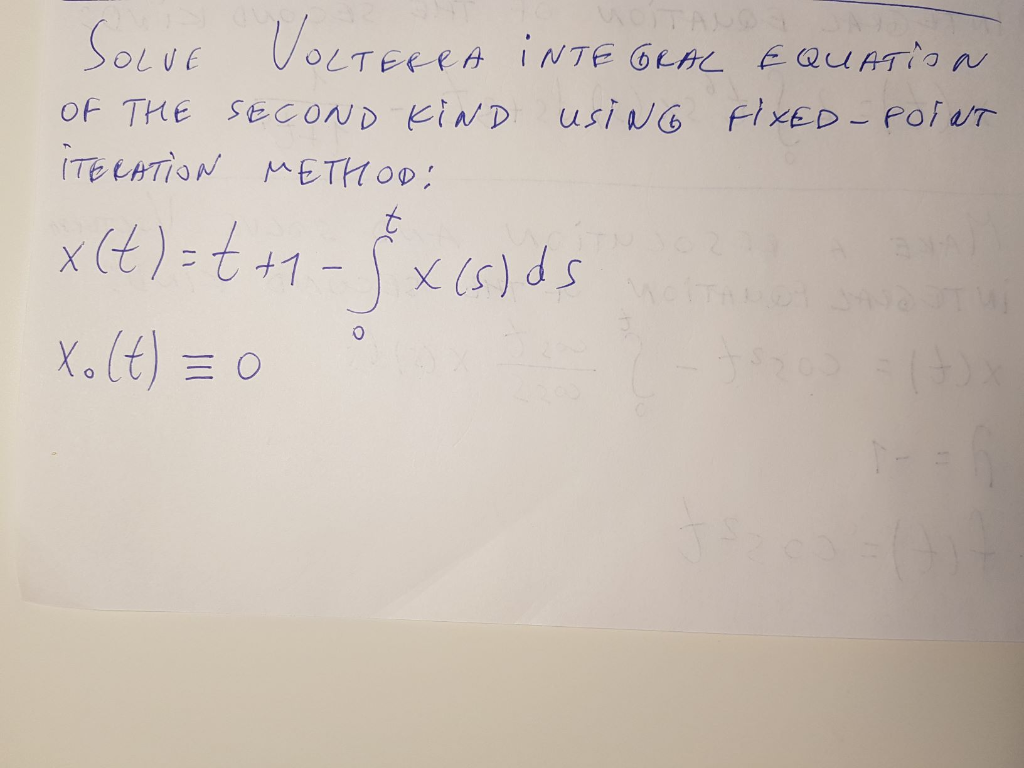 SOLVE VOLTERRA INTEGRAL EQUATION
OF THE SECOND KIND USING FIXED-POINT
ITERATION METHOD:
x(t) = t + 1 - ∫₀ᵗ x(s) ds
x₀(t) ≡ 0